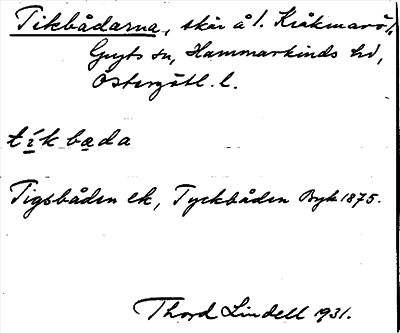 Tikbådarna, skär å l. Kråkmarö,
Gryts sn, Hammarkinds hd,
Östergötl. l.
tíkbada
Tigsbåden ek, Tyckbåden Byk 1875.
Thord Lindell 1931.